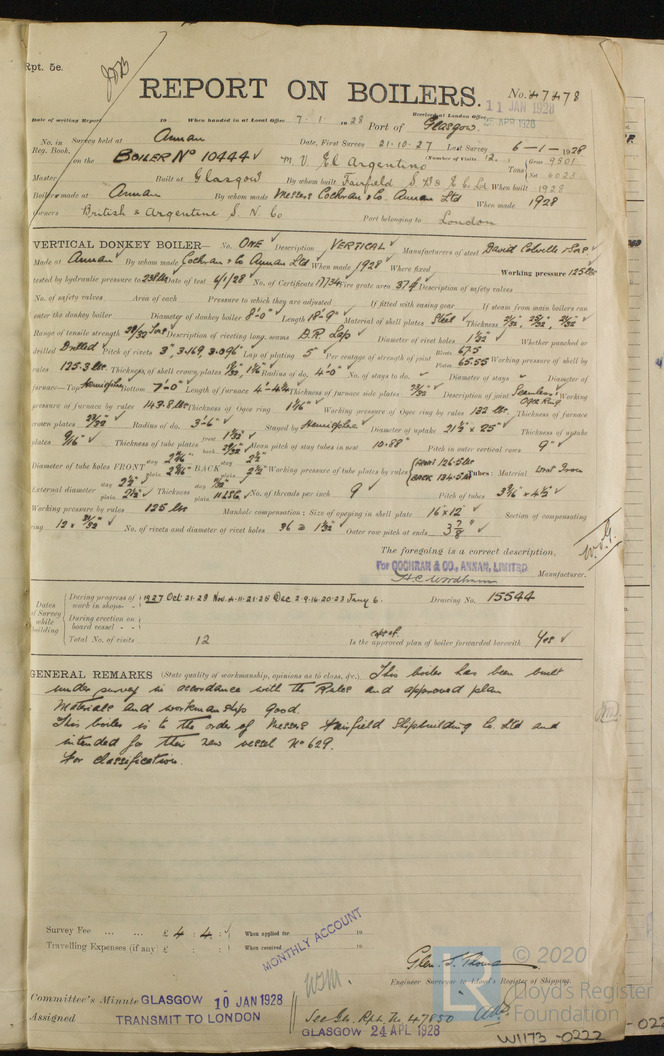 Rpt. 5e.
REPORT ON BOILERS.
No. 47478
11 JAN 1928
25 APR 1928
Date of writing Report 19 When handed in at Local Office 7. 1. 1928 Port of Glasgow
Received at London Office
No. in Reg. Book. Survey held at Annan Date, First Survey 21.10.27 Last Survey 6-1-1928
on the BOILER No 10444 M.V. El Argentino (Number of Visits 12.) Tons Gross 9501 Net 6023
Master Built at Glasgow By whom built Fairfield S. B. & E. Co. Ld When built 1928
Boilers made at Annan By whom made Messrs Cochran & Co. Annan Ltd When made 1928
Owners British & Argentine S. N. Co Port belonging to London
VERTICAL DONKEY BOILER— No. ONE Description VERTICAL Manufacturers of steel David Colville & Sons
Made at Annan By whom made Cochran & Co Annan Ltd When made 1928 Where fixed Working pressure 125 lbs
tested by hydraulic pressure to 238 lbs Date of test 6/1/28 No. of Certificate 17734 Fire grate area 37 Description of safety valves
No. of safety valves Area of each Pressure to which they are adjusted If fitted with easing gear If steam from main boilers can
enter the donkey boiler Diameter of donkey boiler 8'-0" Length 18'-9" Material of shell plates Steel Thickness
Range of tensile strength 28/30 Tons Description of riveting long. seams D.R. Lap Diameter of rivet holes 1 1/32" Whether punched or
drilled Drilled Pitch of rivets 3", 3.169, 3.096" Lap of plating 5" Per centage of strength of joint Rivets 67.5 Plates 65.55 Working pressure of shell by
rules 125.3 lbs. Thickness of shell crown plates Radius of do. 4'-0" No. of stays to do. Diameter of stays Diameter of
furnace—Top Hemispher Bottom 7'-0" Length of furnace 4'-4 Thickness of furnace side plates Description of joint Seamless Ogee Ring Working
pressure of furnace by rules 143.8 lbs Thickness of Ogee ring 1 1/16" Working pressure of Ogee ring by rules 132 lbs. Thickness of furnace
crown plates Radius of do. 3'-6" Stayed by Hemispher Diameter of uptake 21½ x 25" Thickness of uptake
plates 9/16" Thickness of tube plates front back Mean pitch of stay tubes in nest 10.88" Pitch in outer vertical rows 9"
Diameter of tube holes FRONT stay plain BACK stay 2½" plain 2½" Working pressure of tube plates by rules FRONT 126.5 lbs BACK 134.5 lbs Tubes: Material Lowt Iron
External diameter stay 2½" plain 2½" Thickness stay plain No. of threads per inch 9 Pitch of tubes 3 9/16 x 4½"
Working pressure by rules 125 lbs Manhole compensation: Size of opening in shell plate 16 x 12" Section of compensating
ring No. of rivets and diameter of rivet holes 36 @ 1 1/32" Outer row pitch at ends 3 7/8"
The foregoing is a correct description,
For COCHRAN & CO., ANNAN, LIMITED.
Manufacturer.
Dates of Survey while building
During progress of work in shops- - 1927 Oct 21.28 Nov. 4.11.21.25 Dec 2.9.14.20.23 Jany 6. Drawing No. 15544
During erection on board vessel - -
Total No. of visits 12 Is the copy of approved plan of boiler forwarded herewith Yes
GENERAL REMARKS (State quality of workmanship, opinions as to class, &c.) This boiler has been built
under survey in accordance with the Rules and approved plan
Materials and workmanship good.
This boiler is to the order of Messrs Fairfield Shipbuilding Co. Ltd and
intended for their new vessel No 629.
For classification.
Survey Fee ... ... £ 4 : 4 : When applied for 19
Travelling Expenses (if any) £ : : When received 19
MONTHLY ACCOUNT
Engineer Surveyor to Lloyd's Register of Shipping.
Committee's Minute GLASGOW 10 JAN 1928
Assigned TRANSMIT TO LONDON
See Gls. Rpt. No. 47850
GLASGOW 24 APL 1928
© 2020
Lloyd's Register
Foundation
W1173-0222